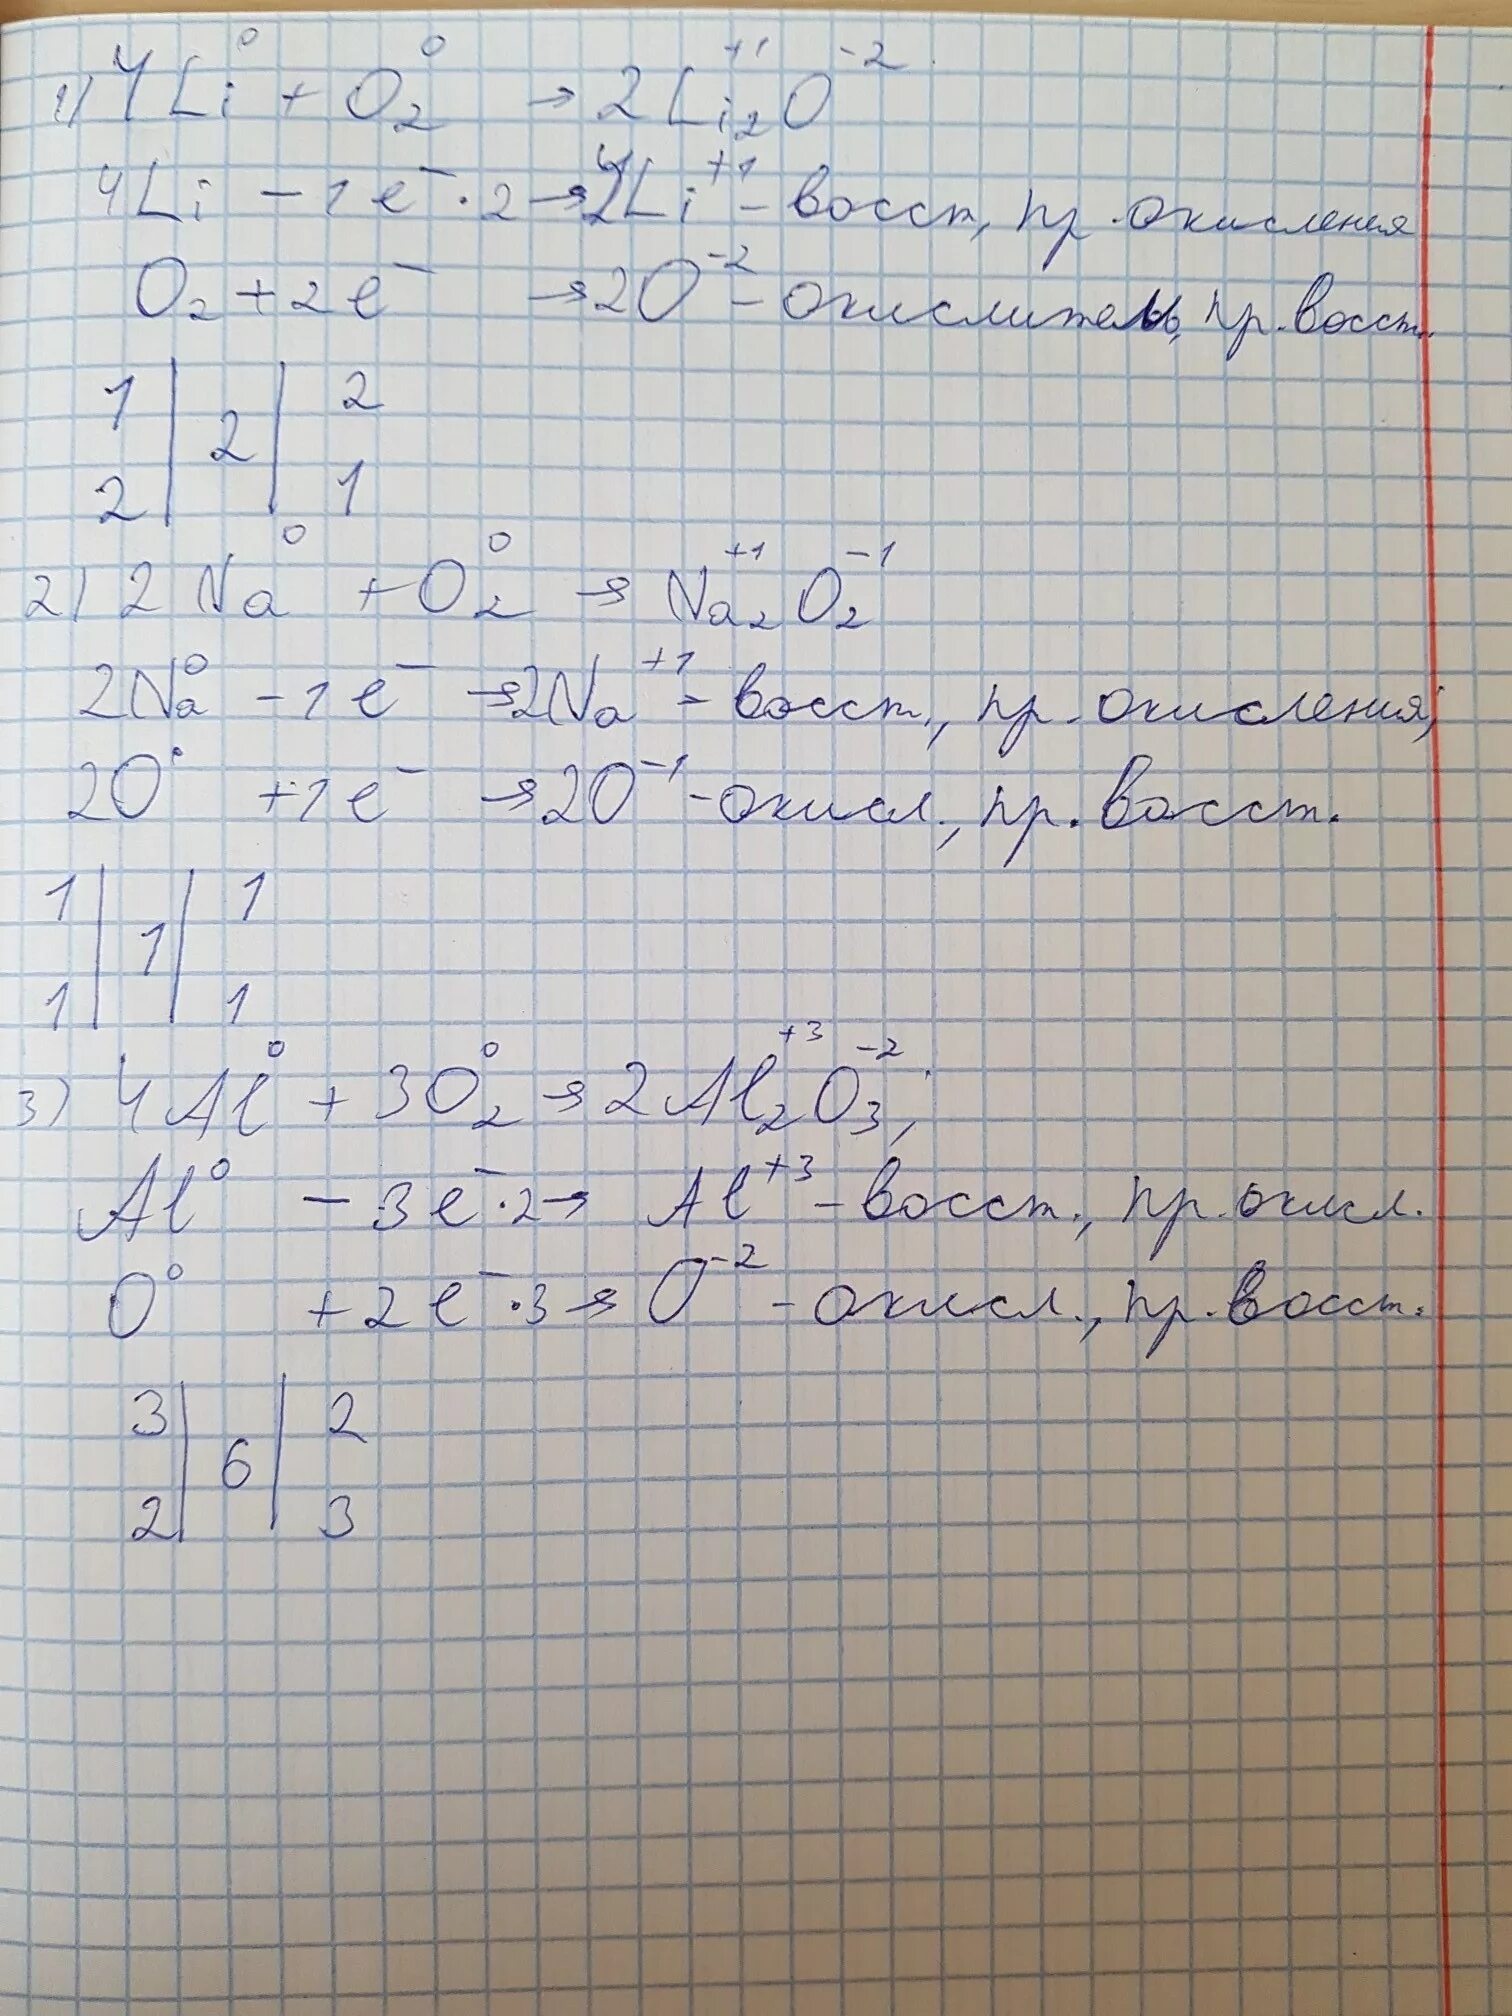 1) 4Li⁰ + O₂⁰ → 2Li₂⁺¹O⁻²
4Li − 1e⁻ · 2 → 4Li⁺¹ – восст, пр. окисления
O₂ + 2e⁻ → 2O⁻² – окислитель, пр. восст.
1 | 2 | 2
2 | | 1
2) 2Na⁰ + O₂⁰ → Na₂⁺¹O₂⁻¹
2Na⁰ − 1e⁻ → 2Na⁺¹ – восст., пр. окисления;
2O⁰ + 1e⁻ → 2O⁻¹ – окисл., пр. восст.
1 | 1 | 1
1 | | 1
3) 4Al⁰ + 3O₂⁰ → 2Al₂⁺³O₃⁻²;
Al⁰ − 3e⁻ · 2 → Al⁺³ – восст., пр. окисл.
O⁰ + 2e⁻ · 3 → O⁻² – окисл., пр. восст.
3 | 6 | 2
2 | | 3